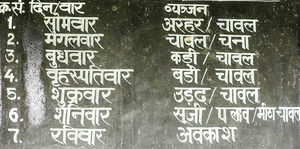 क्र.सं. दिन/वार व्यन्जन
1. सोमवार अरहर/चावल
2. मंगलवार चावल/चना
3. बुधवार कढ़ी/चावल
4. वृहस्पतिवार बड़ी/चावल
5. शुक्रवार उड़द/चावल
6. शनिवार सूजी/ /मीठा चावल
7. रविवार अवकाश